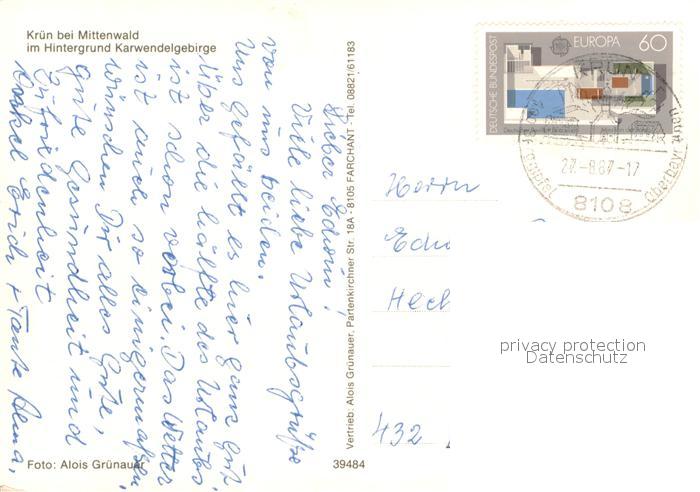 Krün bei Mittenwald
im Hintergrund Karwendelgebirge
Lieber Edwin!
Viele liebe Urlaubsgrüße
von uns beiden.
Uns gefällt es hier ganz gut.
Über die hälfte des Urlaubs
ist schon vorbei. Das Wetter
ist auch so einigermaßen.
wünschen Dir alles Gute,
gute Gesundheit und
Zufriedenheit
Onkel Erich + Tante Alma.
Foto: Alois Grünauer
39484
Vertrieb: Alois Grünauer, Partenkirchner Str. 18A - 8105 FARCHANT - Tel. 08821/61183
DEUTSCHE BUNDESPOST
EUROPA 60
KRÜN
27.-8.87-17
Oberbayr
8108
Herrn
Edw
Hech
432
privacy protection
Datenschutz